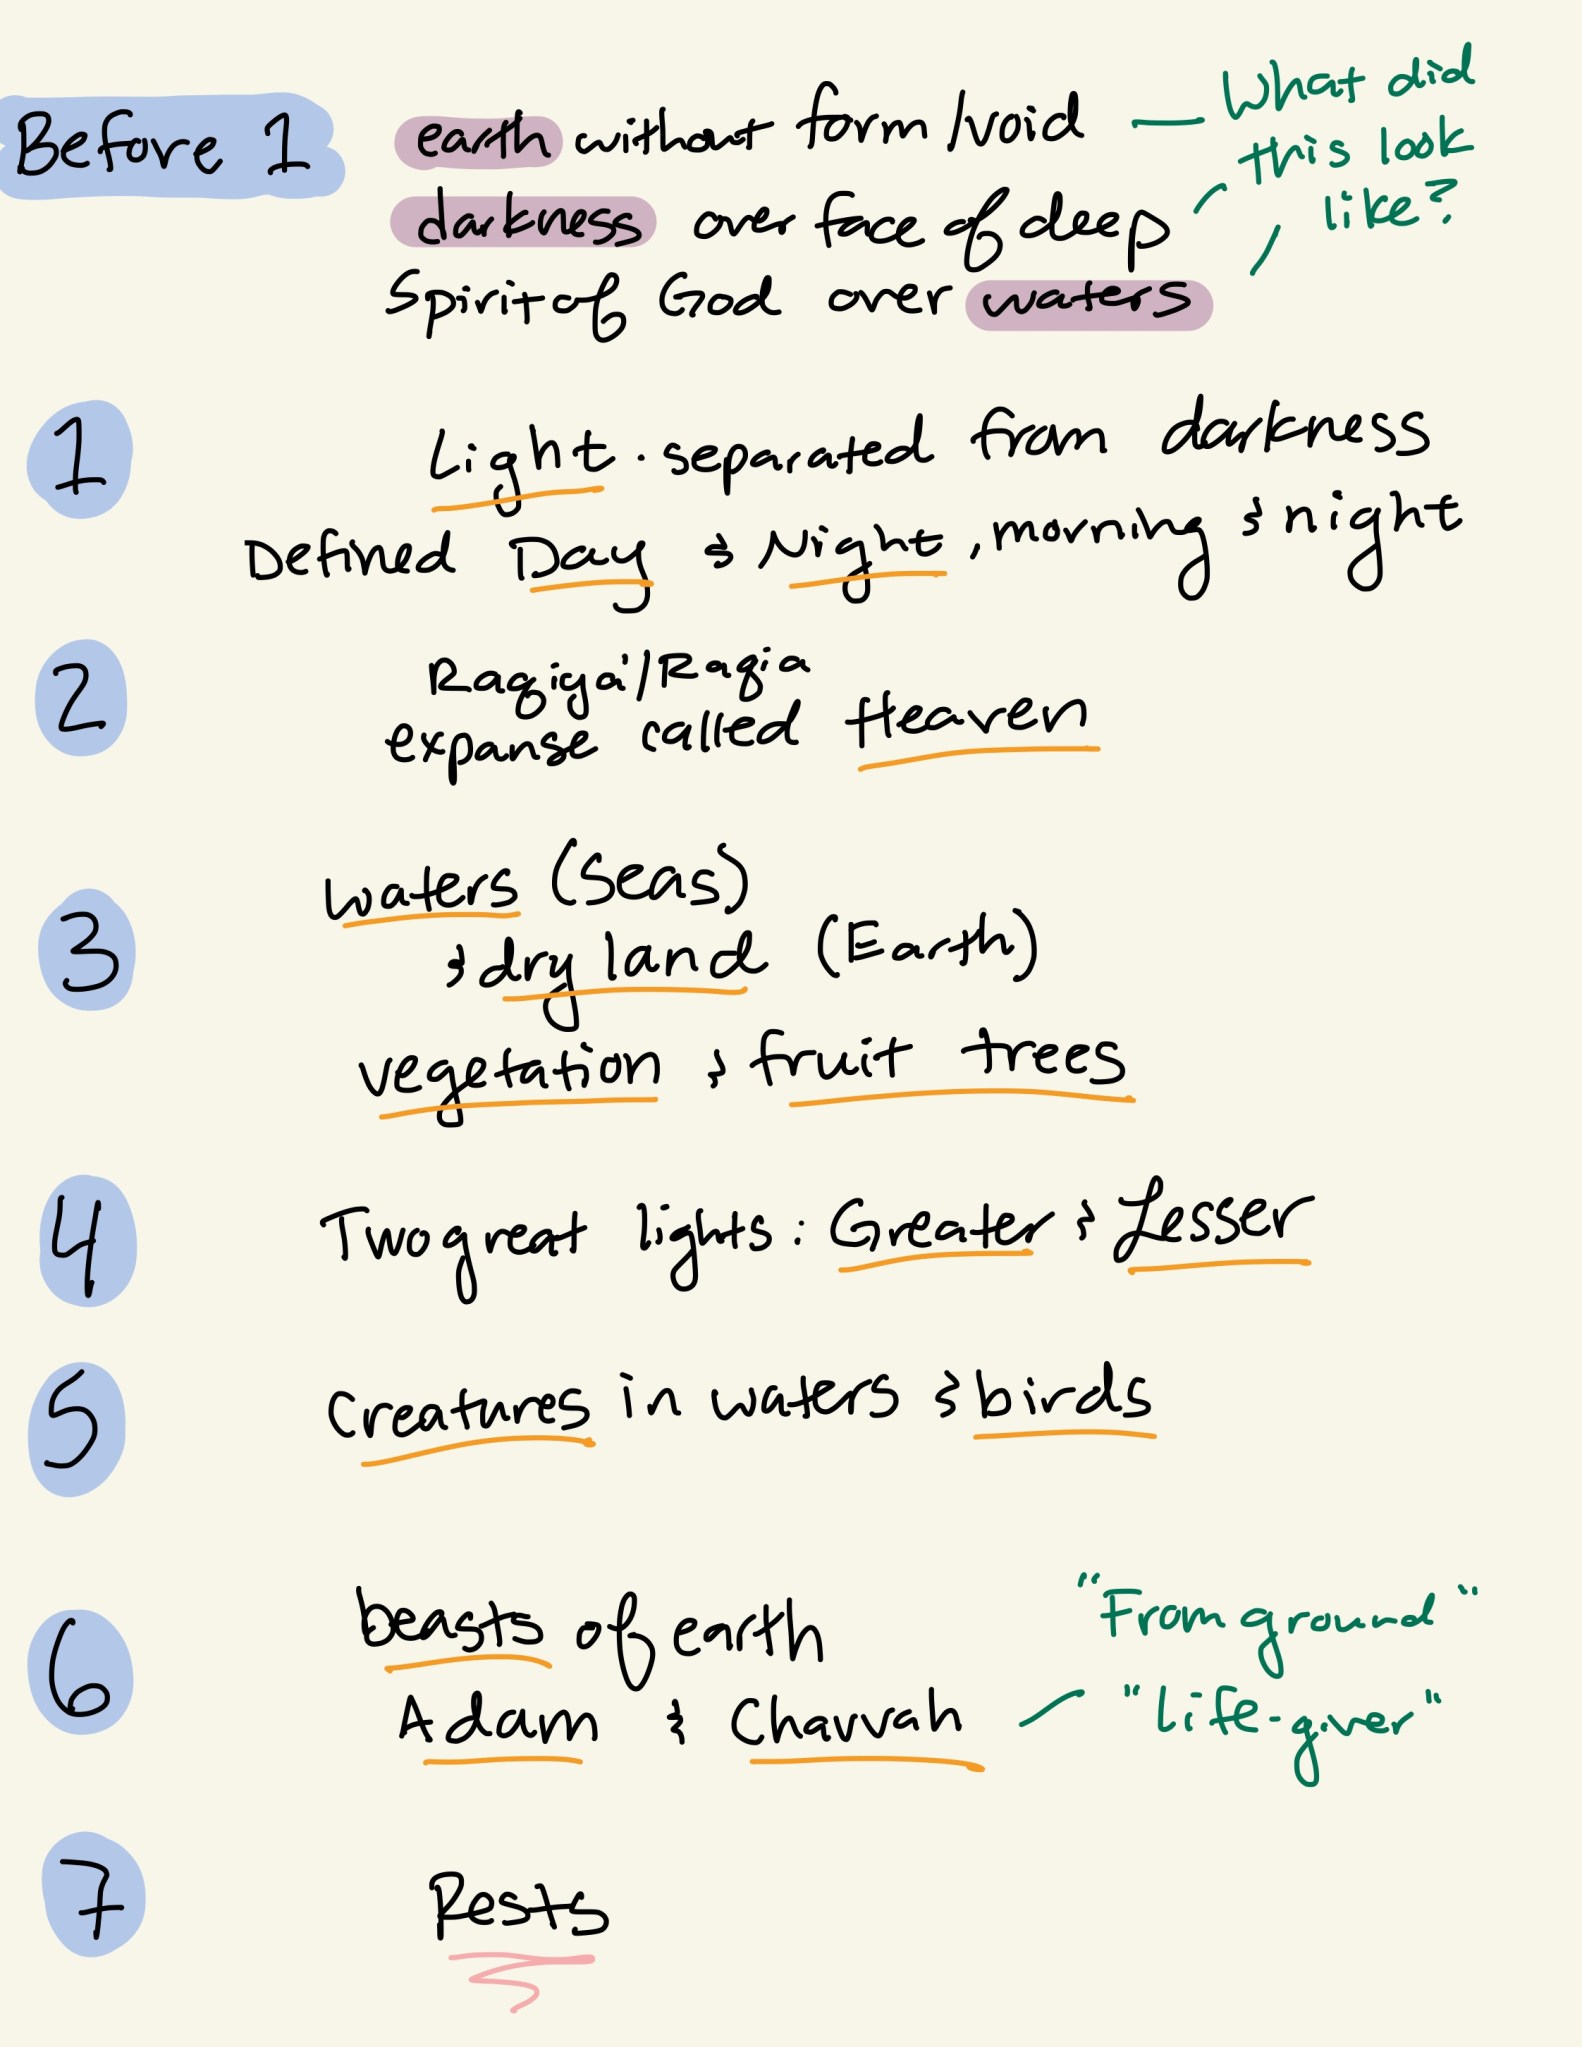 Before 1
earth without form/void
darkness over face of deep
Spirit of God over waters
What did
this look
like?
1
Light. separated from darkness
Defined Day & Night, morning & night
2
Raqiya'/Raqia
expanse called Heaven
3
waters (Seas)
& dry land (Earth)
vegetation & fruit trees
4
Two great lights: Greater & Lesser
5
Creatures in waters & birds
6
beasts of earth
Adam & Chavvah
"From ground"
"Life-giver"
7
Rests